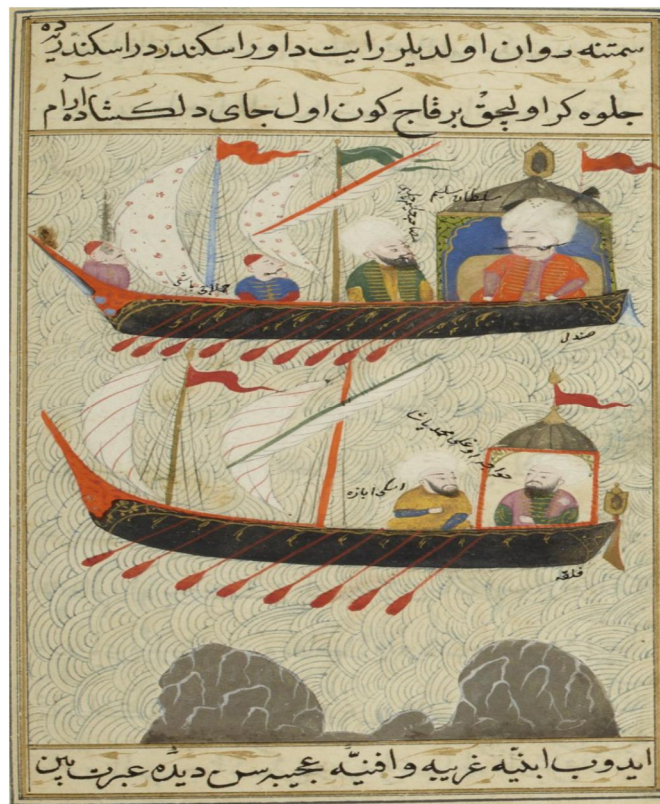 سمتنه روان اولدیلر رایت داور اسکندر در اسکندریده
جلوه کر اولیجق بر قاج کون اول جای دلکشاده آرام
سلطان سلیم
صندل
خواجه اوغلی محمد پاشا
اسکی ابازه
فلقه
ایدوب ابنیهٔ غریبه و افنیهٔ عجیبه سن دیدهٔ عبرت بین